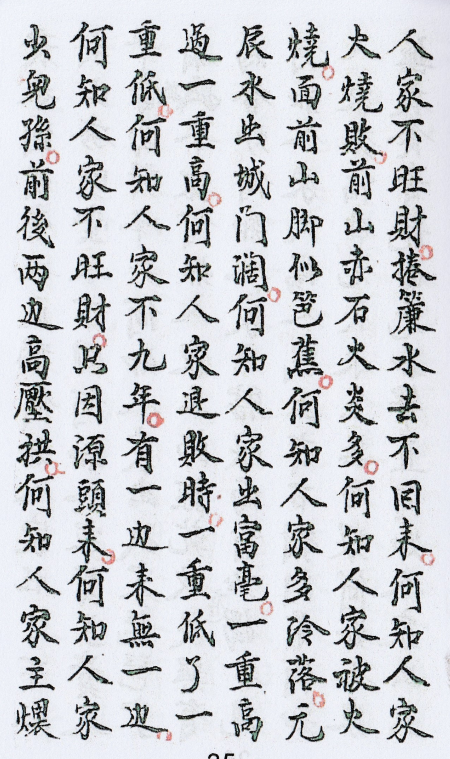 人家不旺財。捲簾水去不囬来。何知人家
火燒敗。前山赤石火炎多。何知人家被火
燒。面前山脚似笆蕉。何知人家多冷落。元
辰水出城门濶。何知人家出富毫。一重高
過一重高。何知人家退敗時。一重低了一
重低。何知人家不九年。有一边来無一边。
何知人家不旺財。只因源頭来。何知人家
出兒孫。前後两边高壓拱。何知人家主煨